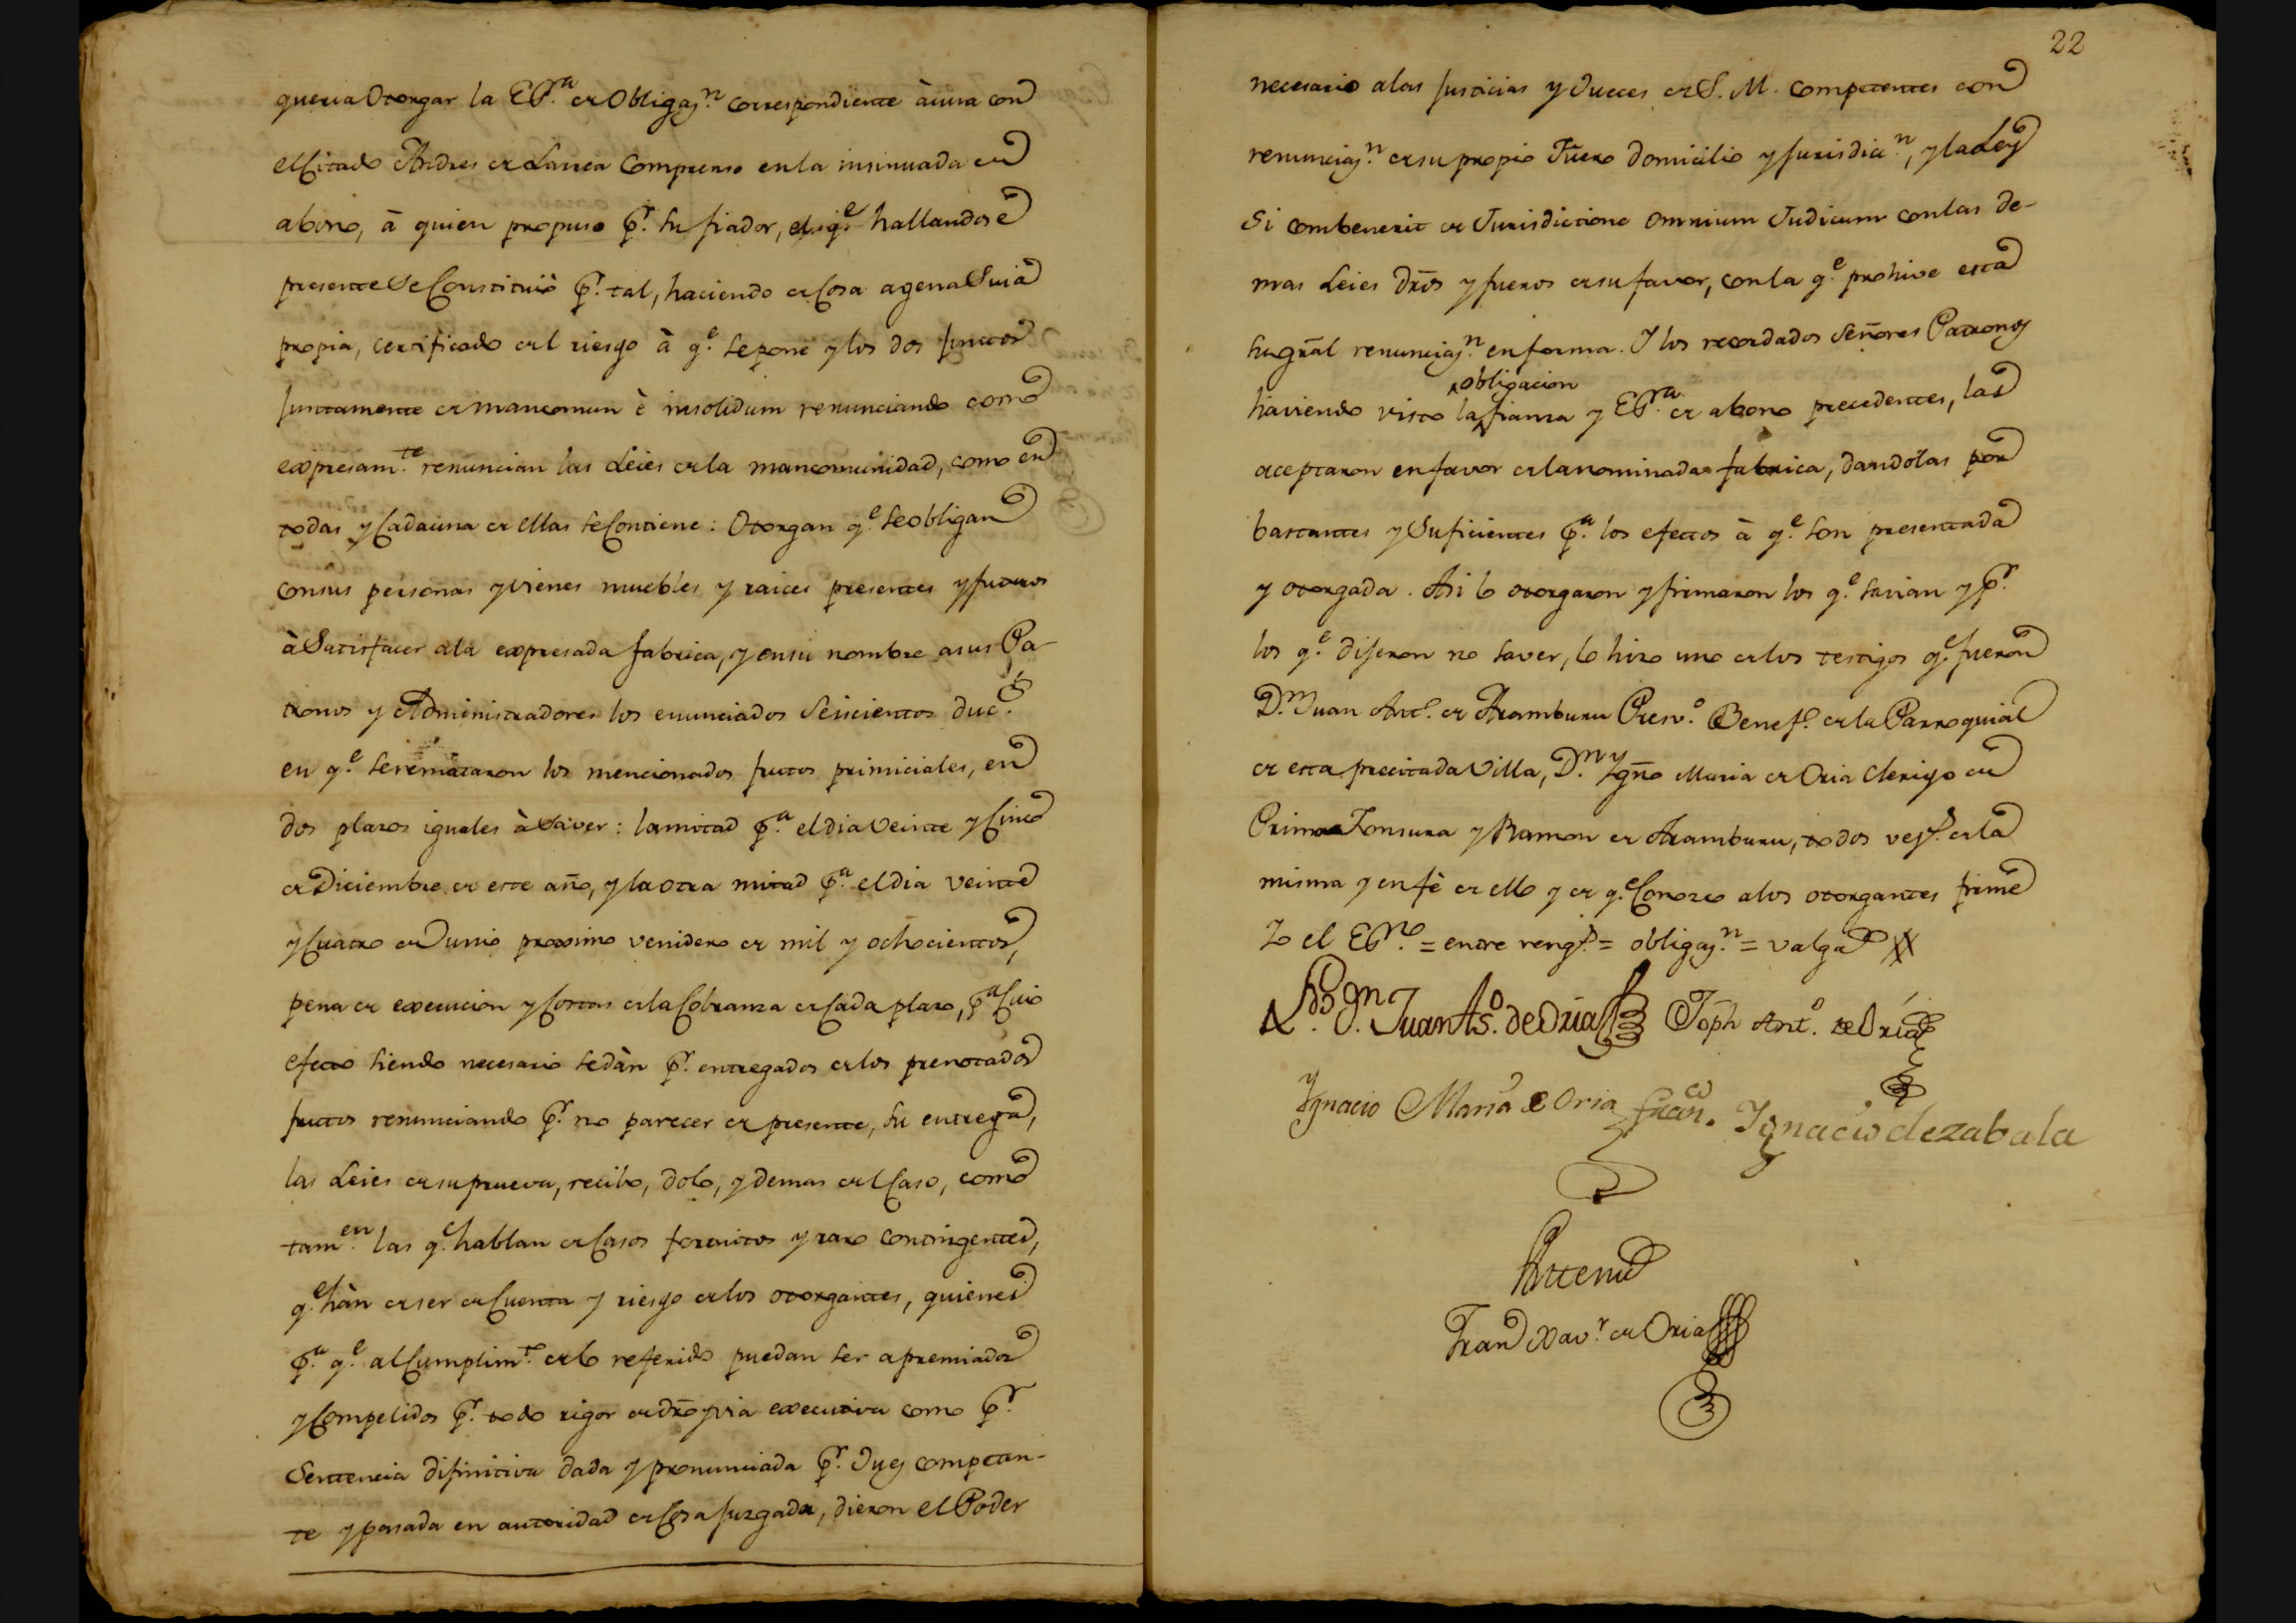 queria Otorgar la Essra. de Obligazn. correspondiente à una con
el Citado Andres de Laurea Comprenso en la insinuada de
abono, à quien propuso pr. su fiador, el qe. hallandose
presente se Constituiò pr. tal, haciendo de Cosa agena Suia
propia, certificado del riesgo à qe. se pone y los dos juntos
juntamente de mancomun è insolidum renunciando como
expresamte. renuncian las Leies de la mancomunidad, como en
todas y Cada una de ellas se Contiene: Otorgan qe. se obligan
con sus personas y vienes muebles y raices presentes y futuros
à Satisfacer a la expresada fabrica, y en su nombre a sus Pa-
tronos y Administradores los enunciados Seiscientos ducs.
en qe. se remataron los mencionados frutos primiciales, en
dos plazos iguales à Saver: la mitad pa. el dia Veinte y Cinco
de Diciembre de este año, y la otra mitad pa. el dia veinte
y Cuatro de Junio proximo venidero de mil y ochocientos,
pena de execucion y Costas de la Cobranza de Cada plazo, pa. Cuio
efecto siendo necesario se dàn pr. entregados de los prenotados
frutos renunciando pr. no parecer de presente, su entrega,
las Leies de su prueva, recibo, dolo, y demas del Caso, como
tamen. las qe. hablan de Casos fortuitos y raro contingentes,
qe. hàn de ser de Cuenta y riesgo de los otorgantes, quienes
pa. qe. al Cumplimto. de lo referido puedan ser apremiados
y Compelidos pr. todo rigor de dro y via executiva como pr.
Sentencia difinitiva dada y pronunciada pr. Juez competan-
te y pasada en autoridad de Cosa juzgada, dieron el Poder
22
necesario a las Justicias y Jueces de S. M. competentes con
renunciazn. de su propio Fuero domicilio y jurisdicn., y la Ley
Si combenerit de Jurisdictione omnium Judicum con las de-
mas Leies dros y fueros de su favor, con la qe. prohive esta
su gral renunciazn. en forma. Y los recordados Señores Patronos
obligacion
haviendo visto la fianza y Essra. de abono precedentes, las
aceptaron en favor de la nominada fabrica, dandolas por
bastantes y Suficientes pa. los efectos à qe. son presentada
y otorgada. Asi lo otorgaron y firmaron los qe. savian y pr.
los qe. dijeron no saver, lo hizo uno de los testigos qe. fueron
Dn. Juan Anto. de Aramburu Presvo. Benefo. de la Parroquial
de esta precitada Villa, Dn. Ygno Maria de Oria Clerigo de
Prima Tonsura y Ramon de Aramburu, todos vezs. de la
misma y en fè de ello y de qe. Conozco a los otorgantes firme
Yo el Essno. = entre rengs. = obligazn. = valga
Ldo. Dn. Juan Aso. de Oria Joph Anto. de Oria
Ygnacio Maria de Oria Franco. Ignacio de zabala
Ante mi
Franco Xavr. de Oria